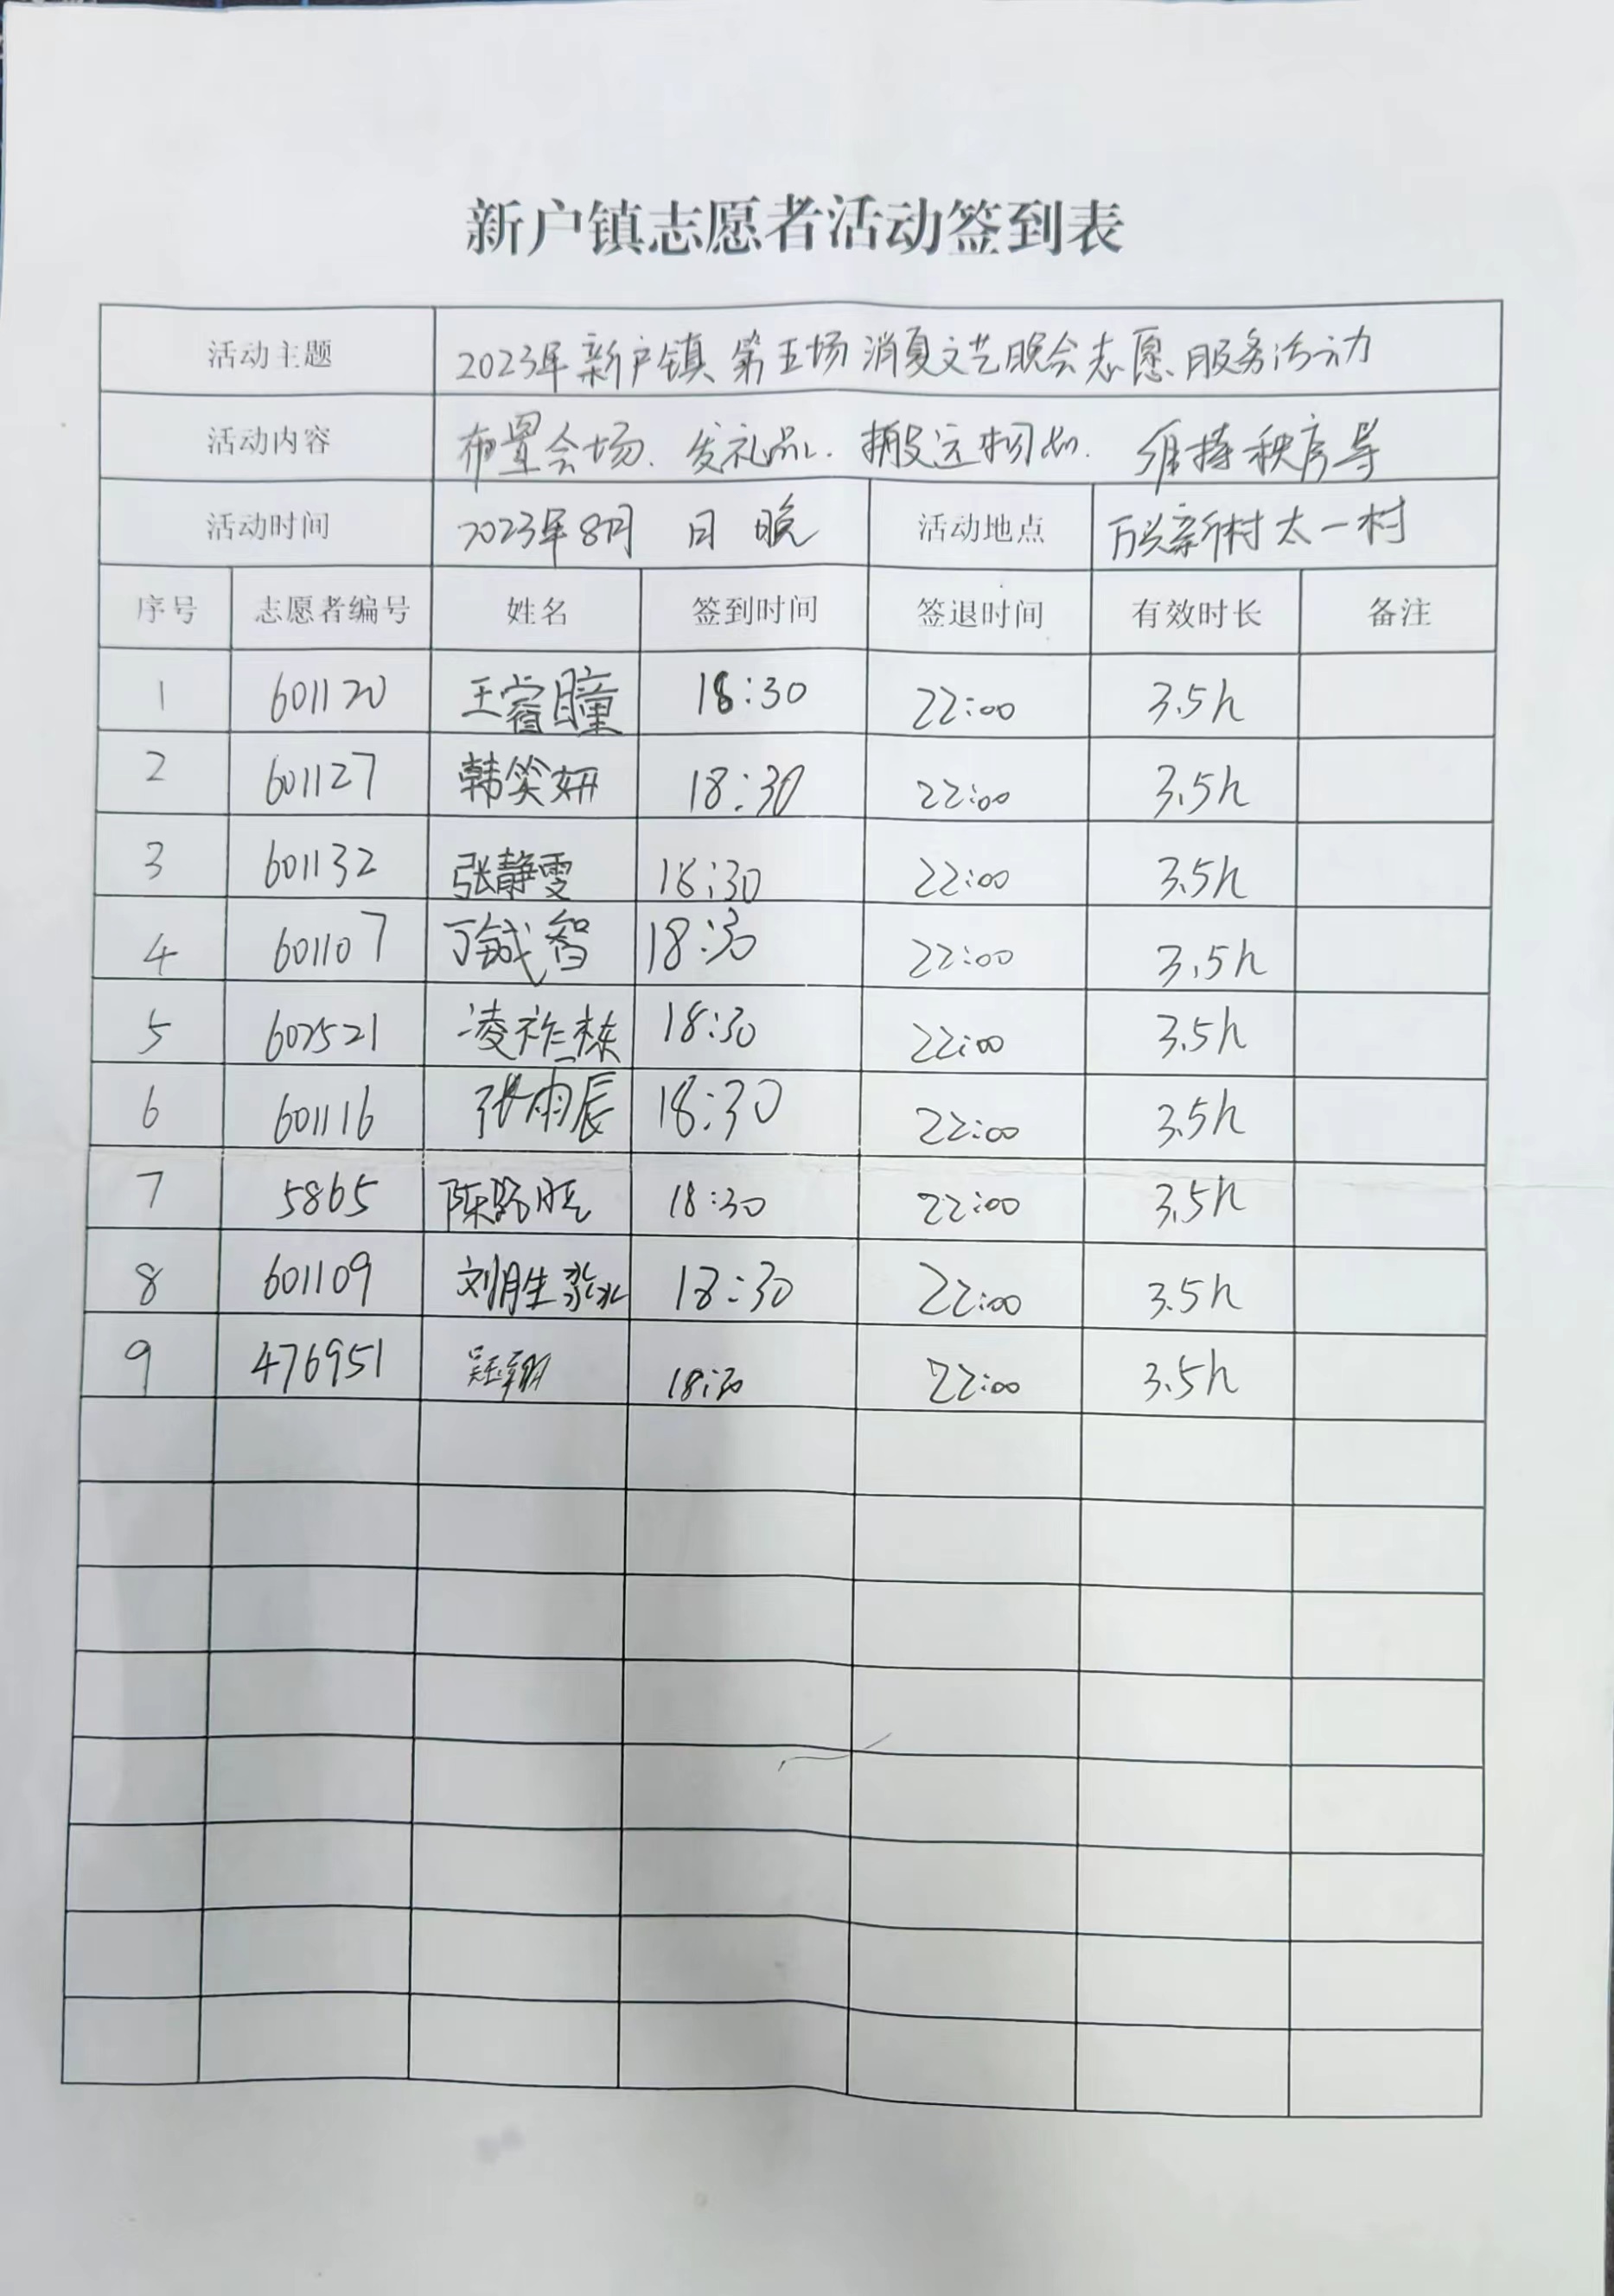 新户镇志愿者活动签到表
活动主题 2023年新户镇第五场消夏文艺晚会志愿服务活动
活动内容 布置会场、发礼品、搬运物品、维持秩序等
活动时间 2023年8月 日 晚 活动地点 万兴新村太一村
序号 志愿者编号 姓名 签到时间 签退时间 有效时长 备注
1 601120 王睿瞳 18:30 22:00 3.5h
2 601127 韩笑妍 18:30 22:00 3.5h
3 601132 张静雯 18:30 22:00 3.5h
4 601107 丁铖智 18:30 22:00 3.5h
5 607521 凌祚栋 18:30 22:00 3.5h
6 601116 张雨辰 18:30 22:00 3.5h
7 5865 陈 18:30 22:00 3.5h
8 601109 刘胜淼 18:30 22:00 3.5h
9 476951 吴 18:30 22:00 3.5h